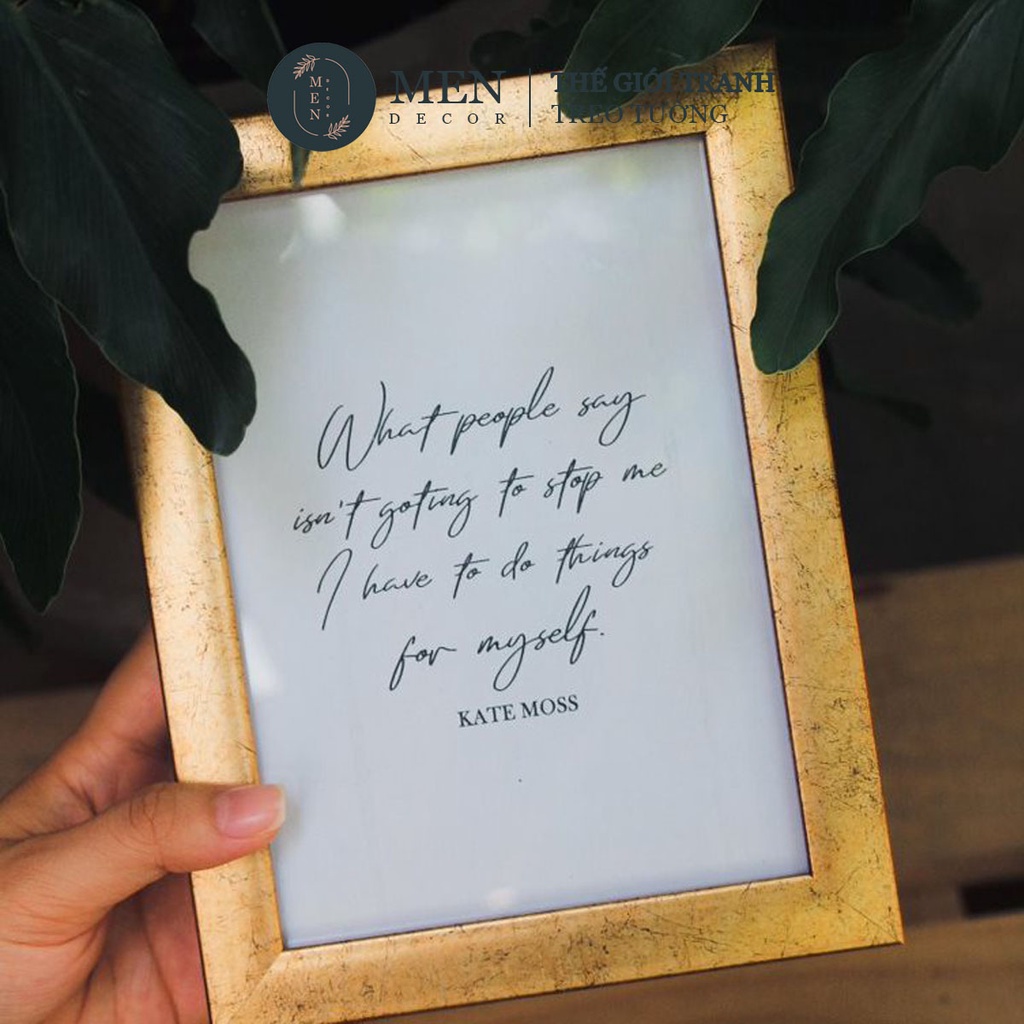 MEN
DECOR
MEN
DECOR
THẾ GIỚI TRANH
TREO TƯỜNG
What people say
isn't goting to stop me
I have to do things
for myself.
KATE MOSS